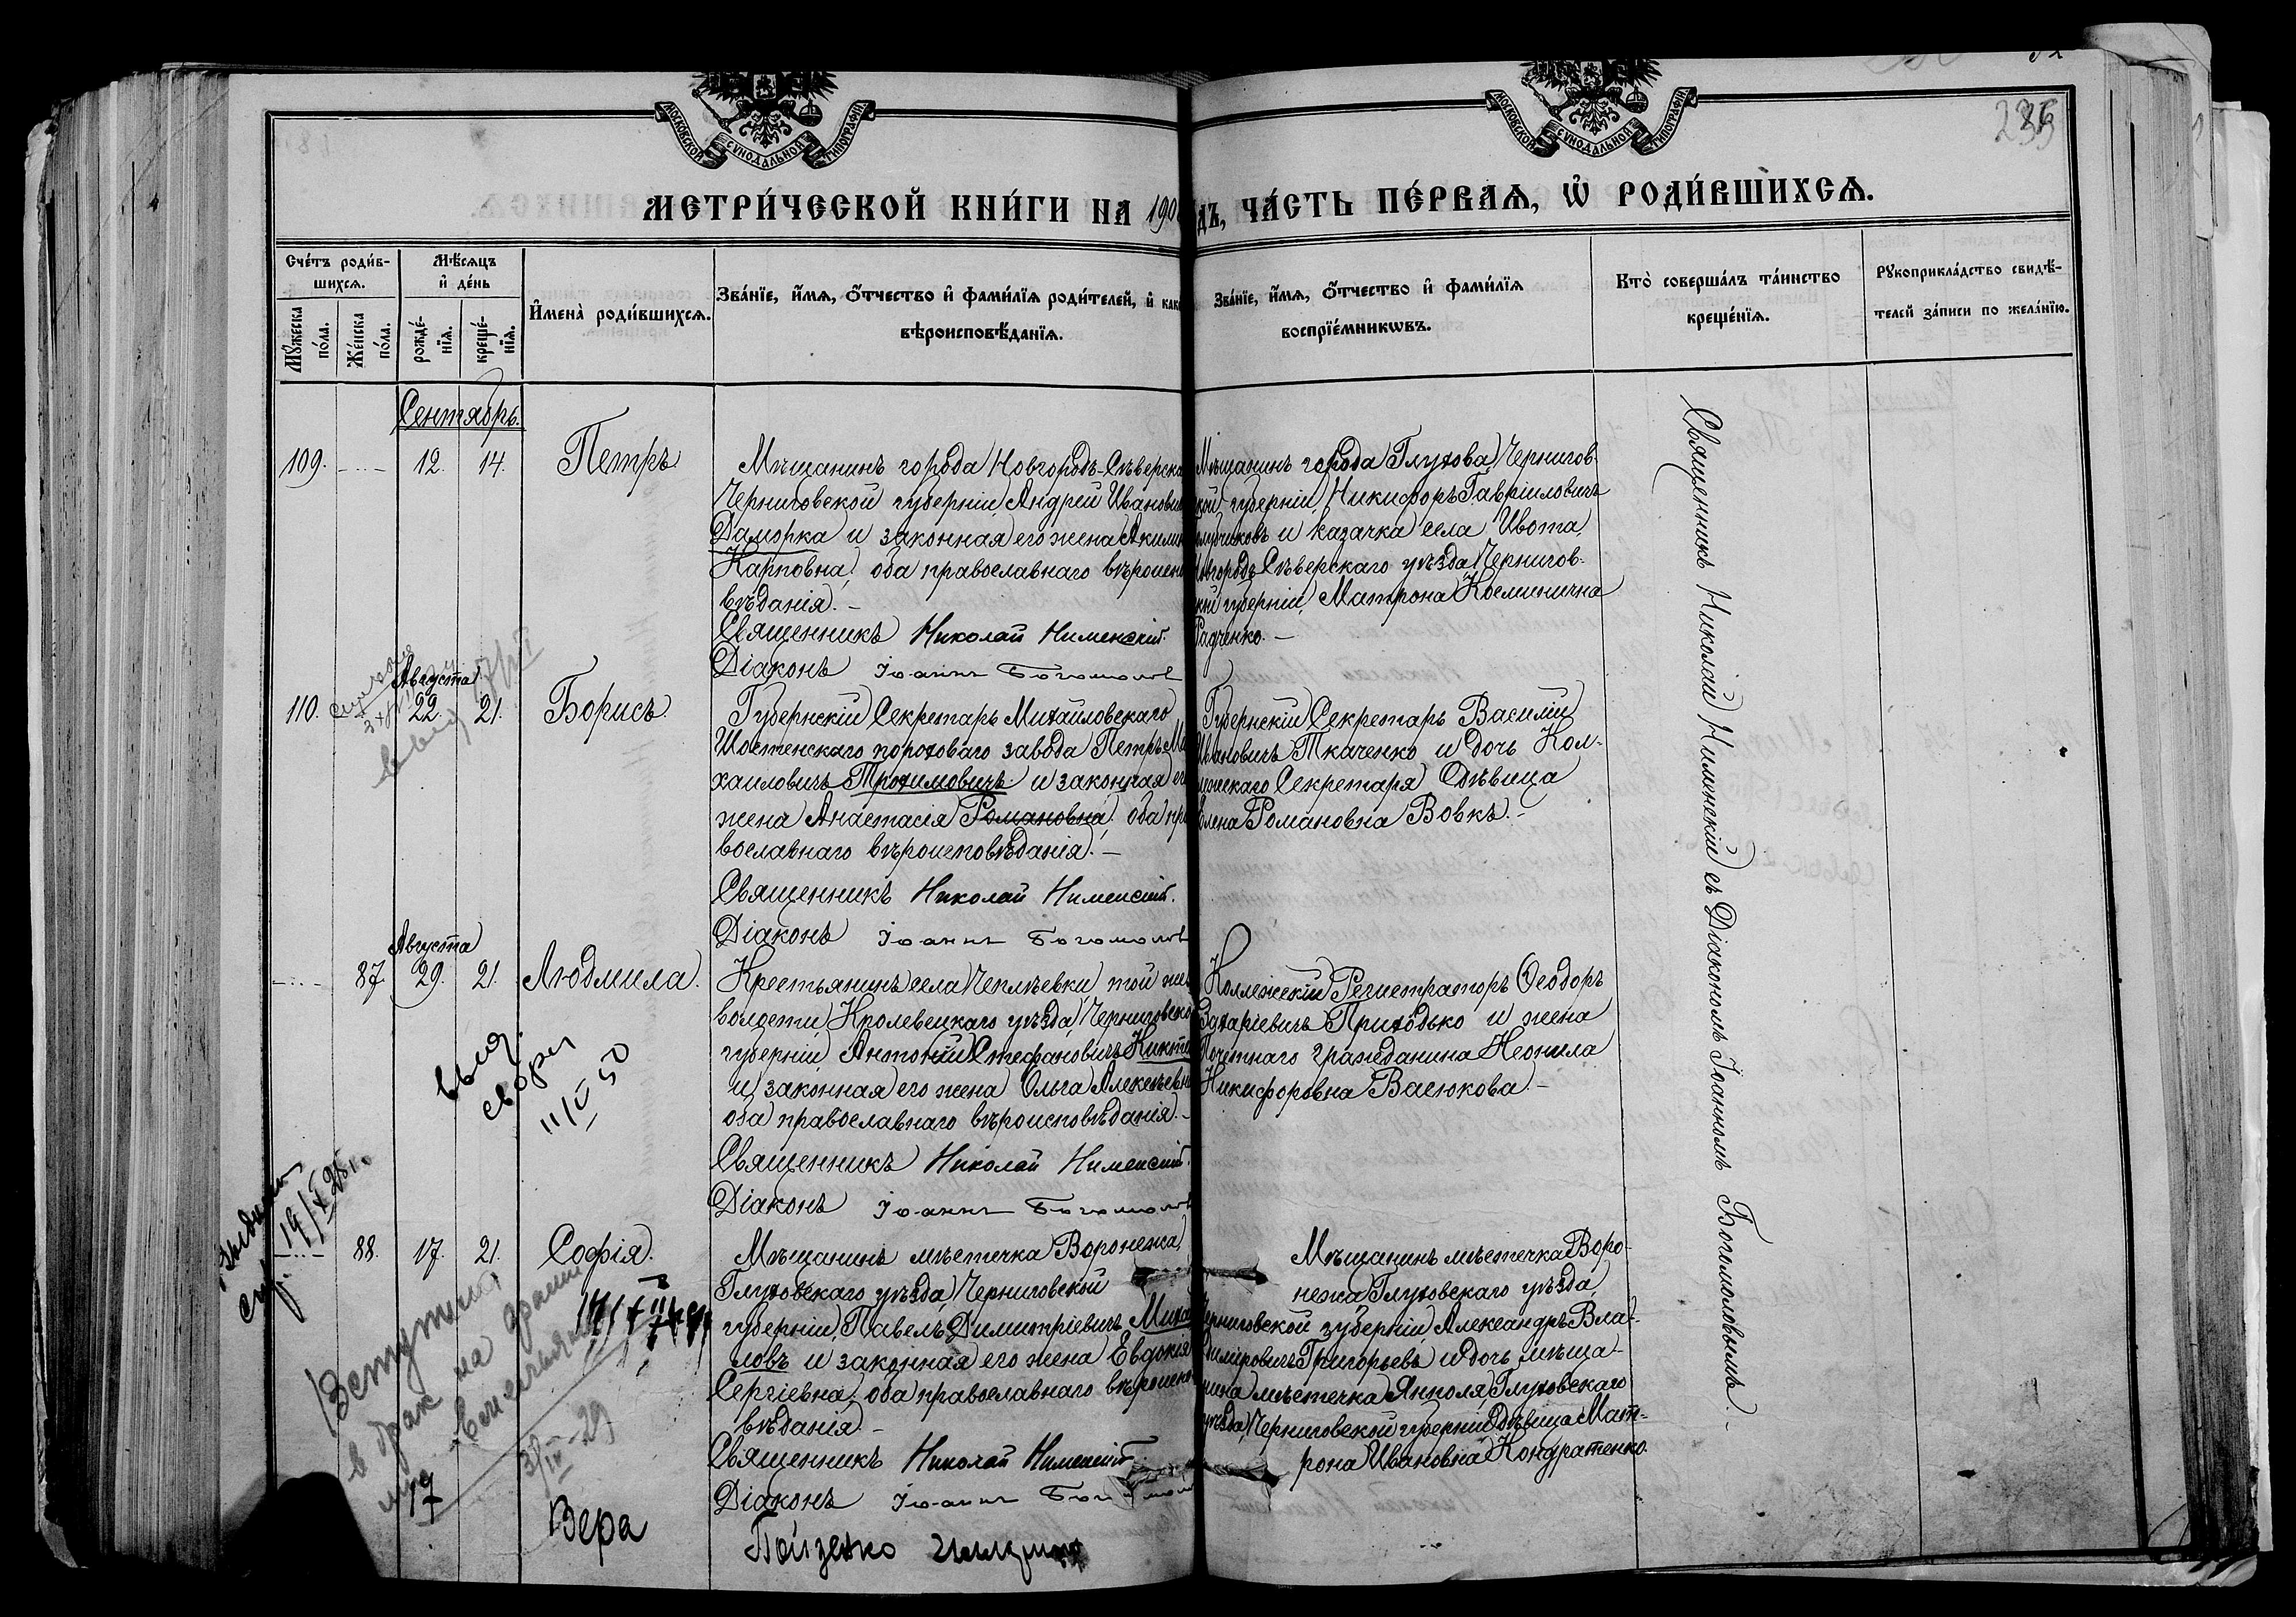 МОСКОВСКОЙ СУНОДАЛЬНОЙ ТИПОГРАФІИ
МОСКОВСКОЙ СУНОДАЛЬНОЙ ТИПОГРАФІИ
МЕТРИ́ЧЕСКОЙ КНИ́ГИ НА 190 ДЪ, ЧА́СТЬ ПЕ́РВАѦ, Ѿ РОДИ́ВШИХСѦ.
Сче́тъ роди́в-
шихсѧ.
Мꙋ́жеска
по́ла.
Же́нска
по́ла.
Мѣ́сѧцъ
и҆ де́нь
рожде́-
нїѧ.
креще́-
нїѧ.
И҆мена̀ роди́вшихсѧ.
Зва́нїе, и҆́мѧ, ѻ҆́тчество и҆ фами́лїѧ роди́телей, и҆ како
вѣроисповѣ́данїѧ.
Зва́нїе, и҆́мѧ, ѻ҆́тчество и҆ фами́лїѧ
воспрїе́мникѡвъ.
Кто̀ соверша́лъ та́инство
креще́нїѧ.
Рꙋкоприкла́дство свидѣ́-
телей за́писи по жела́нїю.
Сентябрь.
109. 12. 14. Петръ
Мѣщанинъ города Новгородъ-Сѣверска
Черниговской губерніи, Андрей Иванович
Даморка и законная его жена Акилин
Карповна, оба православнаго вѣроиспо
вѣданія.
Священникъ Николай Нименскій.
Діаконъ Іоаннъ Богомолов
Мѣщанинъ города Глухова, Чернигов-
кой губерніи, Никифоръ Гавріиловичъ
и казачка села Ивота,
Новгородъ Сѣверскаго уѣзда, Чернигов-
кой губерніи, Матрона Косминична
Радченко.
Августа
110. 22. 21. Борисъ.
Губернскій Секретарь Михайловскаго
Шостенскаго пороховаго завода Петръ Ми
хаиловичъ Трохимовичъ и законная его
жена Анастасія Романовна, оба пра
вославнаго вѣроисповѣданія.
Священникъ Николай Нименскій.
Діаконъ Іоаннъ Богомолов
Губернскій Секретарь Василій
Ивановичъ Ткаченко и дочь Кол-
лежскаго Секретаря дѣвица
Елена Романовна Вовкъ.
Августа
87 29. 21. Людмила.
Крестьянинъ села Чеплѣевки, той же
волости, Кролевецкаго уѣзда, Черниговско
губерніи, Антоній Стефановичъ Никит
и законная его жена Ольга Алексѣевна
оба православнаго вѣроисповѣданія.
Священникъ Николай Нименскій.
Діаконъ Іоаннъ Богомолов
Коллежскій Регистраторъ Ѳеодоръ
Захаріевичъ Приходько и жена
Почетнаго гражданина Неонила
Никифоровна Васюкова.
11/V 50
19/X 28 г.
88. 17. 21. Софія.
Мѣщанинъ мѣстечка Воронежа,
Глуховскаго уѣзда, Черниговской
губерніи, Павелъ Димитріевичъ Михай
ловъ и законная его жена Евдокія
Сергіевна, оба православнаго вѣроиспо
вѣданія.
Священникъ Николай Нименскій
Діаконъ Іоаннъ Богомолов
Мѣщанинъ мѣстечка Воро-
нежа Глуховскаго уѣзда,
Черниговской губерніи, Александръ Вла-
диміровичъ Григорьевъ и дочь мѣща-
нина мѣстечка Янполя, Глуховскаго
уѣзда, Черниговской губерніи дѣвица Мат-
рона Ивановна Кондратенко
Вступил
в брак
3/IV-29
17
Вера
Священникъ Николай Нименскій съ Діакономъ Іоанномъ Богомоловымъ.